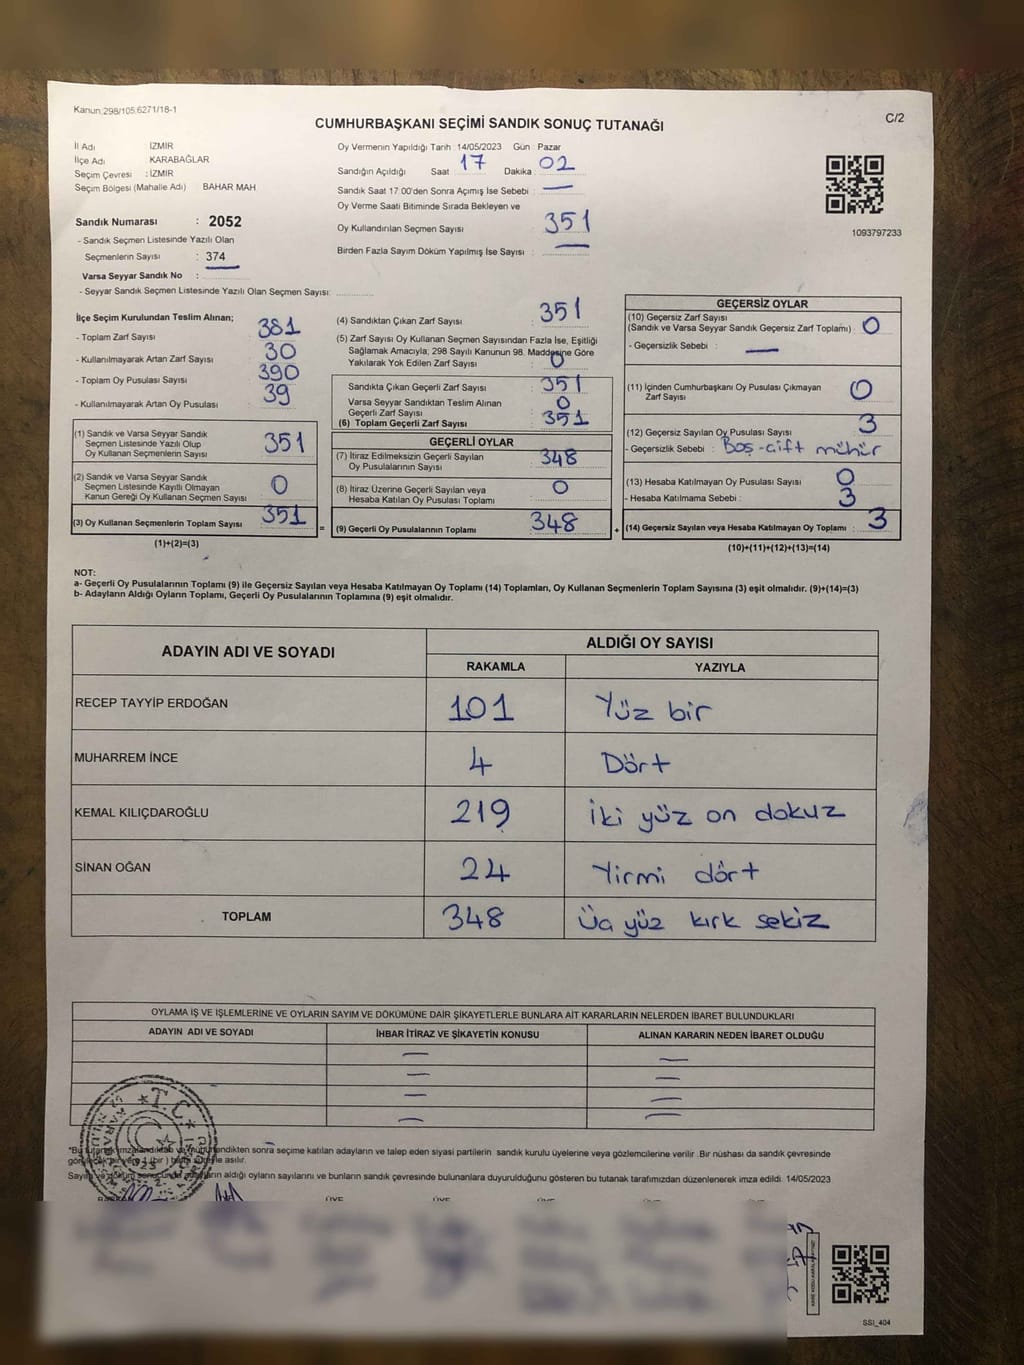 Kanun:298/105;6271/18-1
C/2
CUMHURBAŞKANI SEÇİMİ SANDIK SONUÇ TUTANAĞI
İl Adı İZMİR
İlçe Adı KARABAĞLAR
Seçim Çevresi : İZMİR
Seçim Bölgesi (Mahalle Adı) BAHAR MAH
Sandık Numarası : 2052
- Sandık Seçmen Listesinde Yazılı Olan
Seçmenlerin Sayısı : 374
Varsa Seyyar Sandık No :
- Seyyar Sandık Seçmen Listesinde Yazılı Olan Seçmen Sayısı:
Oy Vermenin Yapıldığı Tarih :14/05/2023 Gün : Pazar
Sandığın Açıldığı Saat 17 Dakika : 02
Sandık Saat 17:00'den Sonra Açımış İse Sebebi : —
Oy Verme Saati Bitiminde Sırada Bekleyen ve
Oy Kullandırılan Seçmen Sayısı : 351
Birden Fazla Sayım Döküm Yapılmış İse Sayısı : —
1093797233
İlçe Seçim Kurulundan Teslim Alınan;
- Toplam Zarf Sayısı : 381
- Kullanılmayarak Artan Zarf Sayısı : 30
- Toplam Oy Pusulası Sayısı : 390
- Kullanılmayarak Artan Oy Pusulası : 39
(1) Sandık ve Varsa Seyyar Sandık
Seçmen Listesinde Yazılı Olup
Oy Kullanan Seçmenlerin Sayısı : 351
(2) Sandık ve Varsa Seyyar Sandık
Seçmen Listesinde Kayıtlı Olmayan
Kanun Gereği Oy Kullanan Seçmen Sayısı : 0
(3) Oy Kullanan Seçmenlerin Toplam Sayısı : 351
(1)+(2)=(3)
=
(4) Sandıktan Çıkan Zarf Sayısı : 351
(5) Zarf Sayısı Oy Kullanan Seçmen Sayısından Fazla İse, Eşitliği
Sağlamak Amacıyla; 298 Sayılı Kanunun 98. Maddesine Göre
Yakılarak Yok Edilen Zarf Sayısı : 0
Sandıkta Çıkan Geçerli Zarf Sayısı : 351
Varsa Seyyar Sandıktan Teslim Alınan
Geçerli Zarf Sayısı : 0
(6) Toplam Geçerli Zarf Sayısı : 351
GEÇERLİ OYLAR
(7) İtiraz Edilmeksizin Geçerli Sayılan
Oy Pusulalarının Sayısı : 348
(8) İtiraz Üzerine Geçerli Sayılan veya
Hesaba Katılan Oy Pusulası Toplamı : 0
(9) Geçerli Oy Pusulalarının Toplamı : 348
+
GEÇERSİZ OYLAR
(10) Geçersiz Zarf Sayısı
(Sandık ve Varsa Seyyar Sandık Geçersiz Zarf Toplamı) : 0
- Geçersizlik Sebebi : —
(11) İçinden Cumhurbaşkanı Oy Pusulası Çıkmayan
Zarf Sayısı : 0
(12) Geçersiz Sayılan Oy Pusulası Sayısı : 3
- Geçersizlik Sebebi : Boş-çift mühür
(13) Hesaba Katılmayan Oy Pusulası Sayısı : 0
- Hesaba Katılmama Sebebi : 3
(14) Geçersiz Sayılan veya Hesaba Katılmayan Oy Toplamı : 3
(10)+(11)+(12)+(13)=(14)
NOT:
a- Geçerli Oy Pusulalarının Toplamı (9) ile Geçersiz Sayılan veya Hesaba Katılmayan Oy Toplamı (14) Toplamları, Oy Kullanan Seçmenlerin Toplam Sayısına (3) eşit olmalıdır. (9)+(14)=(3)
b- Adayların Aldığı Oyların Toplamı, Geçerli Oy Pusulalarının Toplamına (9) eşit olmalıdır.
ADAYIN ADI VE SOYADI ALDIĞI OY SAYISI
RAKAMLA YAZIYLA
RECEP TAYYİP ERDOĞAN 101 Yüz bir
MUHARREM İNCE 4 Dört
KEMAL KILIÇDAROĞLU 219 İki yüz on dokuz
SİNAN OĞAN 24 Yirmi dört
TOPLAM 348 Üç yüz kırk sekiz
OYLAMA İŞ VE İŞLEMLERİNE VE OYLARIN SAYIM VE DÖKÜMÜNE DAİR ŞİKAYETLERLE BUNLARA AİT KARARLARIN NELERDEN İBARET BULUNDUKLARI
ADAYIN ADI VE SOYADI İHBAR İTİRAZ VE ŞİKAYETİN KONUSU ALINAN KARARIN NEDEN İBARET OLDUĞU
— —
— —
— —
— —
T.C.
sonra seçime katılan adayların ve talep eden siyasi partilerin sandık kurulu üyelerine veya gözlemcilerine verilir. Bir nüshası da sandık çevresinde
asılır.
aldığı oyların sayılarını ve bunların sandık çevresinde bulunanlara duyurulduğunu gösteren bu tutanak tarafımızdan düzenlenerek imza edildi. 14/05/2023
ÜYE ÜYE
SSI_404